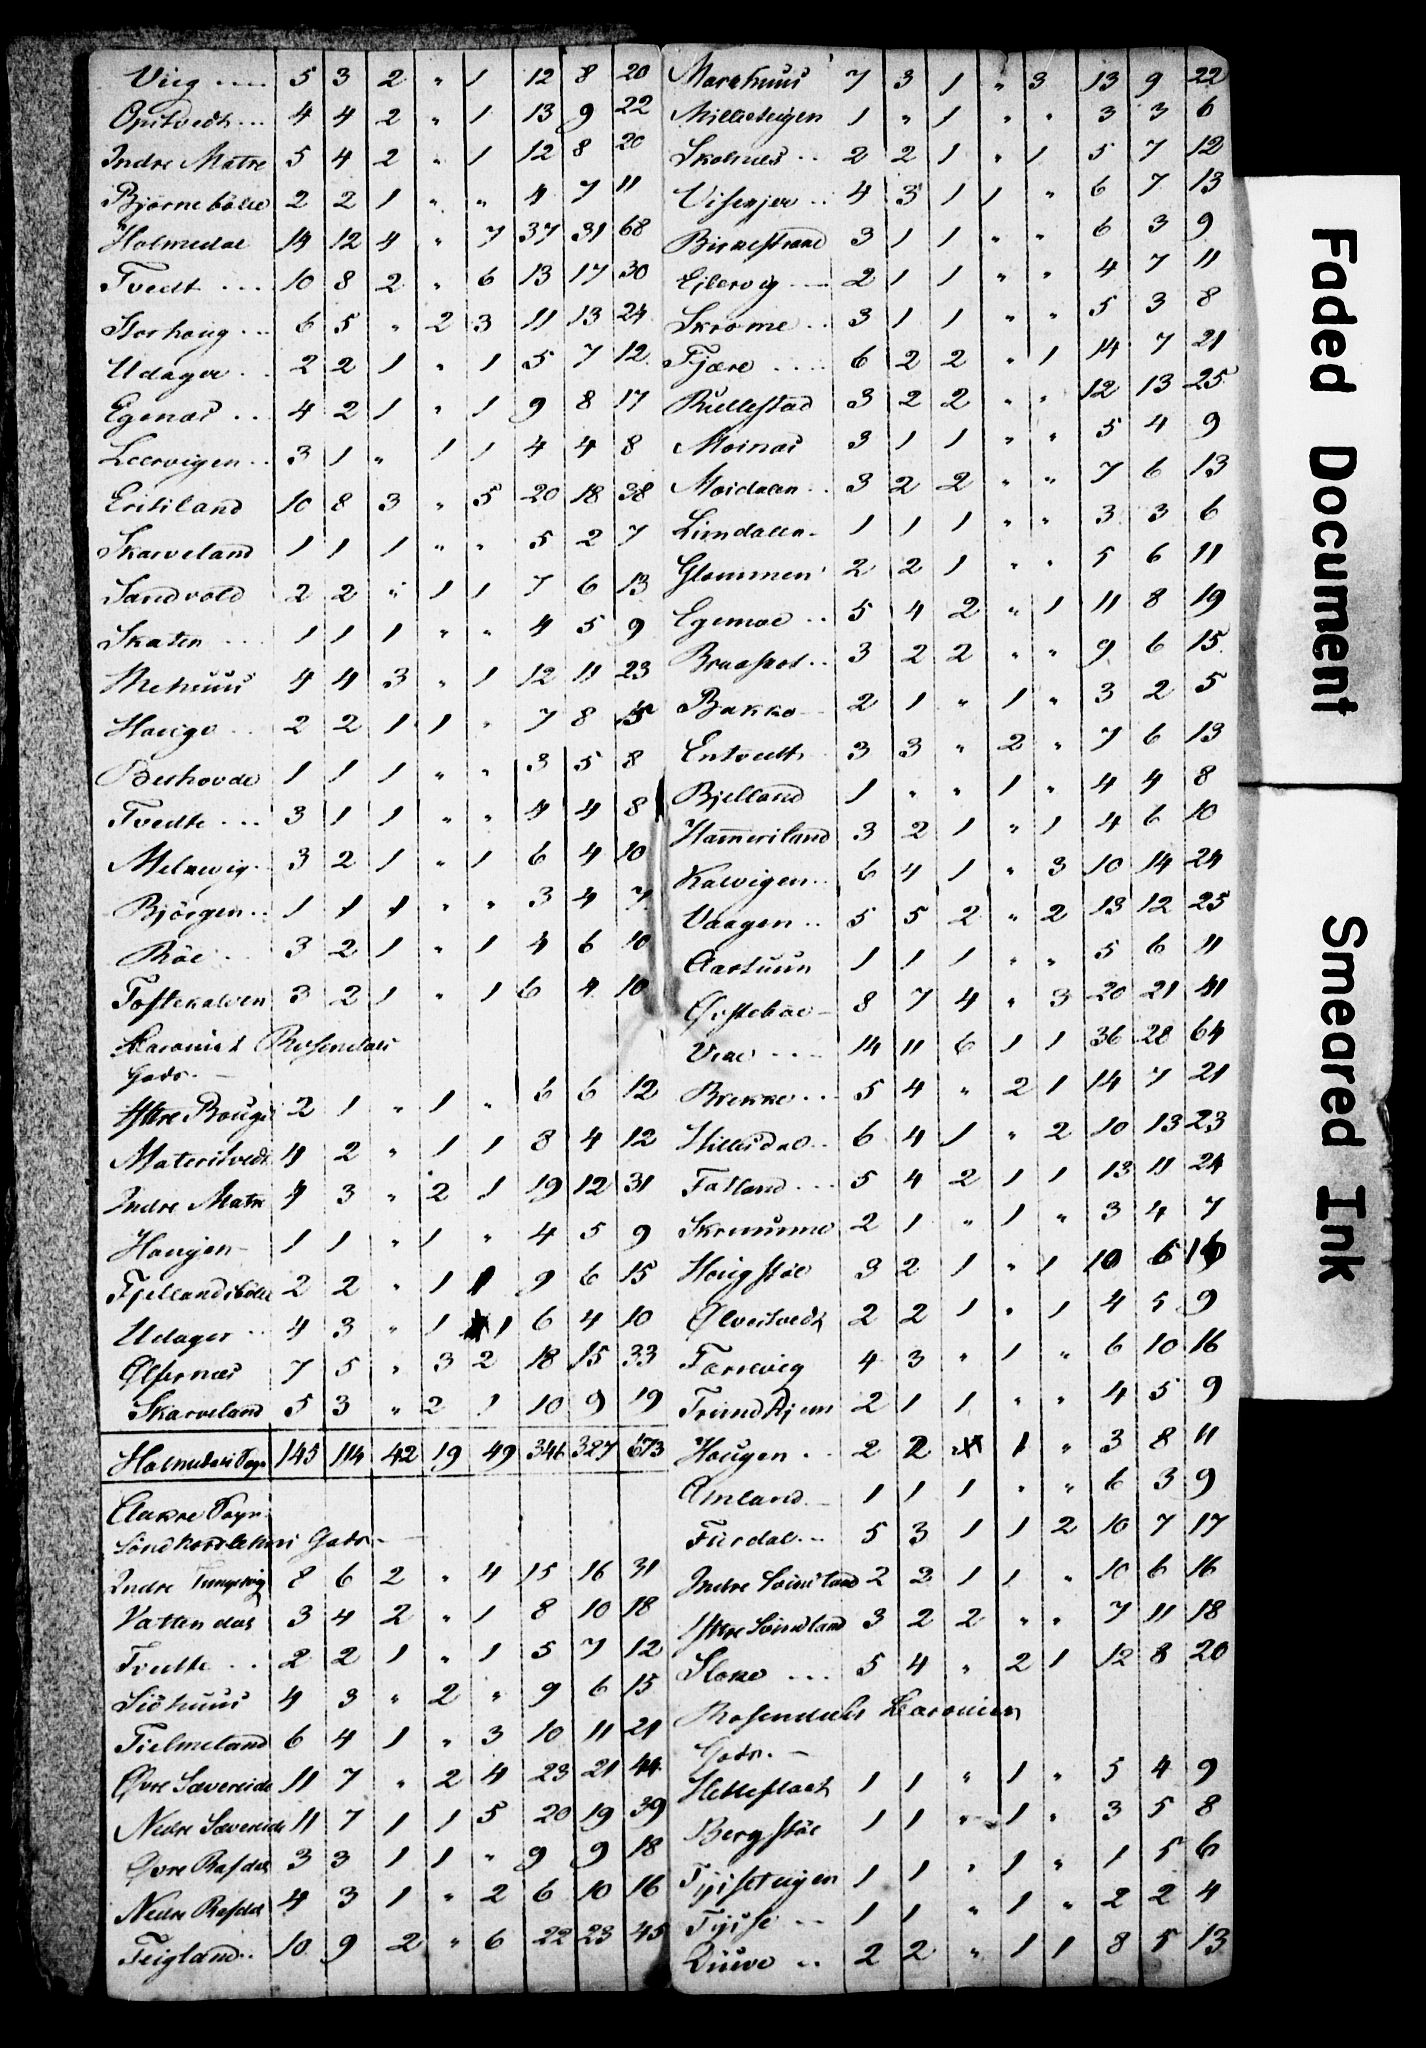 Viig .... 5 3 2 " 1 12 8 20
Opitvedt... 4 4 2 " 1 13 9 22
Indre Matre 5 4 2 " 1 12 8 20
Bjørnebölle 2 2 1 " " 4 7 11
Holmedal 14 12 4 " 7 37 31 68
Tvedt ... 10 8 2 " 6 13 17 30
Storhoug ... 6 5 " 2 3 11 13 24
Udager .. 2 2 1 " 1 5 7 12
Egenæs .. 4 2 1 " 1 9 8 17
Leervigen.. 3 1 " 1 1 4 4 8
Eritsland 10 8 3 " 5 20 18 38
Skarveland 1 1 1 " " 5 2 7
Sandvold 2 2 " 1 1 7 6 13
Skaten .. 1 1 1 " " 4 5 9
Mehuus 4 4 3 " 1 12 11 23
Hauge .. 2 2 1 1 " 7 8 15
Berhovde 1 1 1 " " 3 5 8
Tvedte ... 3 1 1 " " 4 4 8
Melsevig. 3 2 1 " 1 6 4 10
Bjørgen.. 1 1 1 " " 3 4 7
Röe .. 3 2 1 " 1 4 6 10
Toftekalven 3 2 1 " 1 6 4 10
Baroniet Rosendals
Gods. —
Ystre Bouge 2 1 " 1 " 6 6 12
Materstvedt 4 2 " 1 1 8 4 12
Indre Matre 4 3 " 2 1 19 12 31
Hougen — 1 1 " 1 " 4 5 9
Fjellandsbölle 2 2 " 1 1 9 6 15
Udager .. 4 3 " 1 1 6 4 10
Ølfernæs 7 5 " 3 2 18 15 33
Skarveland 5 3 " 2 1 10 9 19
Holmedals Sogn 145 114 42 19 49 346 327 673
Aakre Sogn.
Söndhordlehns Gods. —
Indre Tungesvig 8 6 2 " 4 15 16 31
Vattendal 3 4 2 " 1 8 10 18
Tvedte .. 2 2 1 " 1 5 7 12
Sishuus 4 3 " 2 " 9 6 15
Tielmeland 6 4 1 " 3 10 11 21
Øvre Sævereide 11 7 " 2 4 23 21 44
Nedre Sævereide 11 7 1 1 5 20 19 39
Øvre Rafdal 3 3 1 1 " 9 9 18
Nedre Rafdal 4 3 1 " 2 6 10 16
Teigland.. 10 9 2 " 6 22 23 45
Marchuus 7 3 1 " 3 13 9 22
Millesteigen 1 " 1 " " 3 3 6
Skolnæs .. 2 2 1 " 1 5 7 12
4 3 1 1 " 6 7 13
Birnestrand 3 1 1 " " 6 3 9
Eilervig ... 2 1 1 " " 4 7 11
Skromme .. 3 1 1 " " 5 3 8
Fjære .... 6 2 2 " 1 14 7 21
Rullestad 3 2 2 " " 12 13 25
Moinæs 3 1 1 " " 5 4 9
Moidalen .. 3 2 2 " " 7 6 13
Limdalen. 1 1 1 " " 3 3 6
Glommen 2 2 1 " " 5 6 11
Egemoe .. 5 4 2 " 1 11 8 19
3 2 2 " " 9 6 15
Bakke — 2 1 " 1 " 3 2 5
Entvedt .. 3 3 " 2 " 7 6 13
Bjelland 1 " " 1 " 4 4 8
Hammersland 3 2 1 " 1 4 6 10
Kalvigen.. 6 4 1 " 3 10 14 24
Vaagen .. 5 5 2 " 2 13 12 25
Aartuun 1 1 1 " " 5 6 11
Østeböe — 8 7 4 " 3 20 21 41
14 11 6 1 1 36 28 64
Brekke ... 5 4 " 2 1 14 7 21
Hillesdal .. 6 4 1 " 2 10 13 23
Fatland ... 5 4 2 1 1 13 11 24
Skrumme 2 1 " 1 " 3 4 7
Hougstöl 3 2 1 " 1 10 6 16
Ølverstvedt 2 2 1 " 1 4 5 9
4 3 " 1 " 6 10 16
2 1 1 " " 4 5 9
Hougen . 2 2 " 1 " 3 8 11
Amland — 1 1 1 " " 6 3 9
Furdal ... 5 3 1 1 2 10 7 17
Indre Sundland 2 2 1 1 " 10 6 16
Ystre Sundland 3 2 2 " " 7 11 18
5 4 " 2 1 12 8 20
Rosendals Baronies
Gods. —
Hetleflaat 1 1 " 1 " 5 4 9
Bergstöl 1 1 " 1 " 3 5 8
1 1 " 1 " 1 5 6
1 1 " 1 " 2 2 4
2 2 " 1 1 8 5 13
Faded Document
Smeared Ink